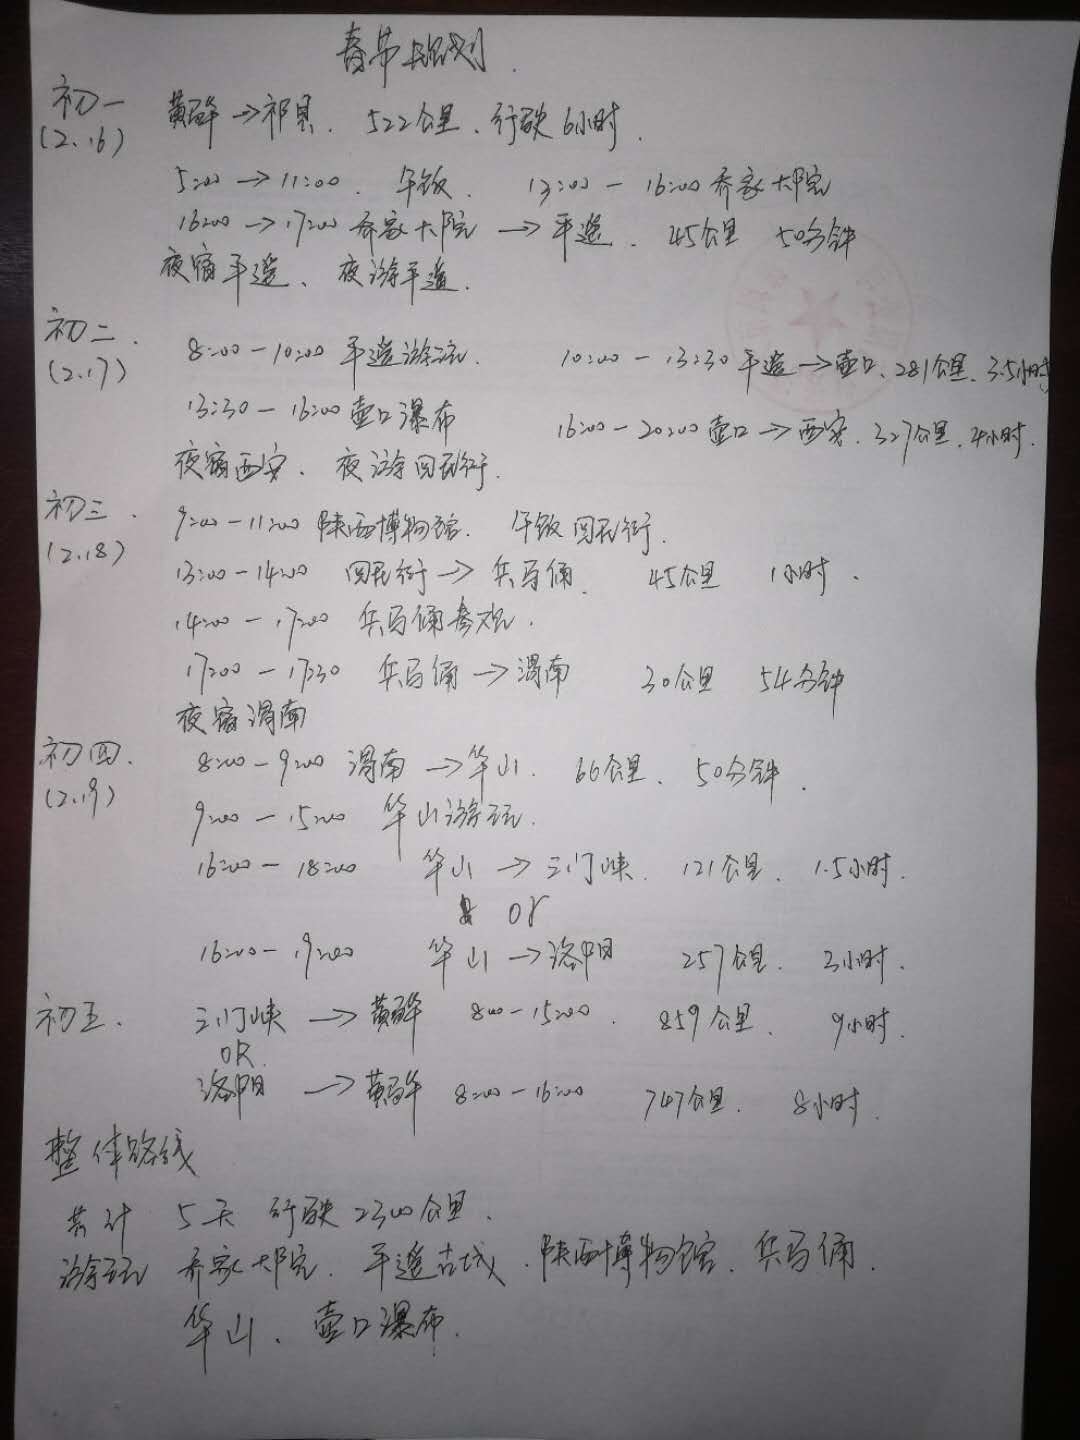 春节规划.
初一 黄骅→祁县. 522公里. 行驶6小时.
(2.16)
5:00→11:00. 午饭. 13:00-16:00乔家大院
16:00→17:00 乔家大院→平遥. 45公里 50分钟
夜宿平遥、夜游平遥.
初二.
(2.17) 8:00-10:00 平遥游玩. 10:00-13:30 平遥→壶口、281公里. 3.5小时
13:30-16:00壶口瀑布 16:00-20:00 壶口→西安. 327公里. 4小时.
夜宿西安. 夜游回民街.
初三. 9:00-11:00 陕西博物馆. 午饭回民街.
(2.18)
13:00-14:00 回民街→兵马俑. 45公里 1小时.
14:00-17:00 兵马俑参观.
17:00-17:30 兵马俑→渭南 30公里 54分钟
夜宿渭南
初四. 8:00-9:00 渭南→华山. 66公里. 50分钟.
(2.19)
9:00-15:00 华山游玩.
16:00-18:00 华山→三门峡. 121公里. 1.5小时.
or
16:00-19:00 华山→洛阳 257公里. 3小时.
初五. 三门峡→黄骅 8:00-15:00. 859公里. 9小时.
OR
洛阳→黄骅 8:00-16:00 747公里. 8小时.
整体路线
共计 5天 行驶2300公里.
游玩 乔家大院. 平遥古城. 陕西博物馆. 兵马俑.
华山. 壶口瀑布.